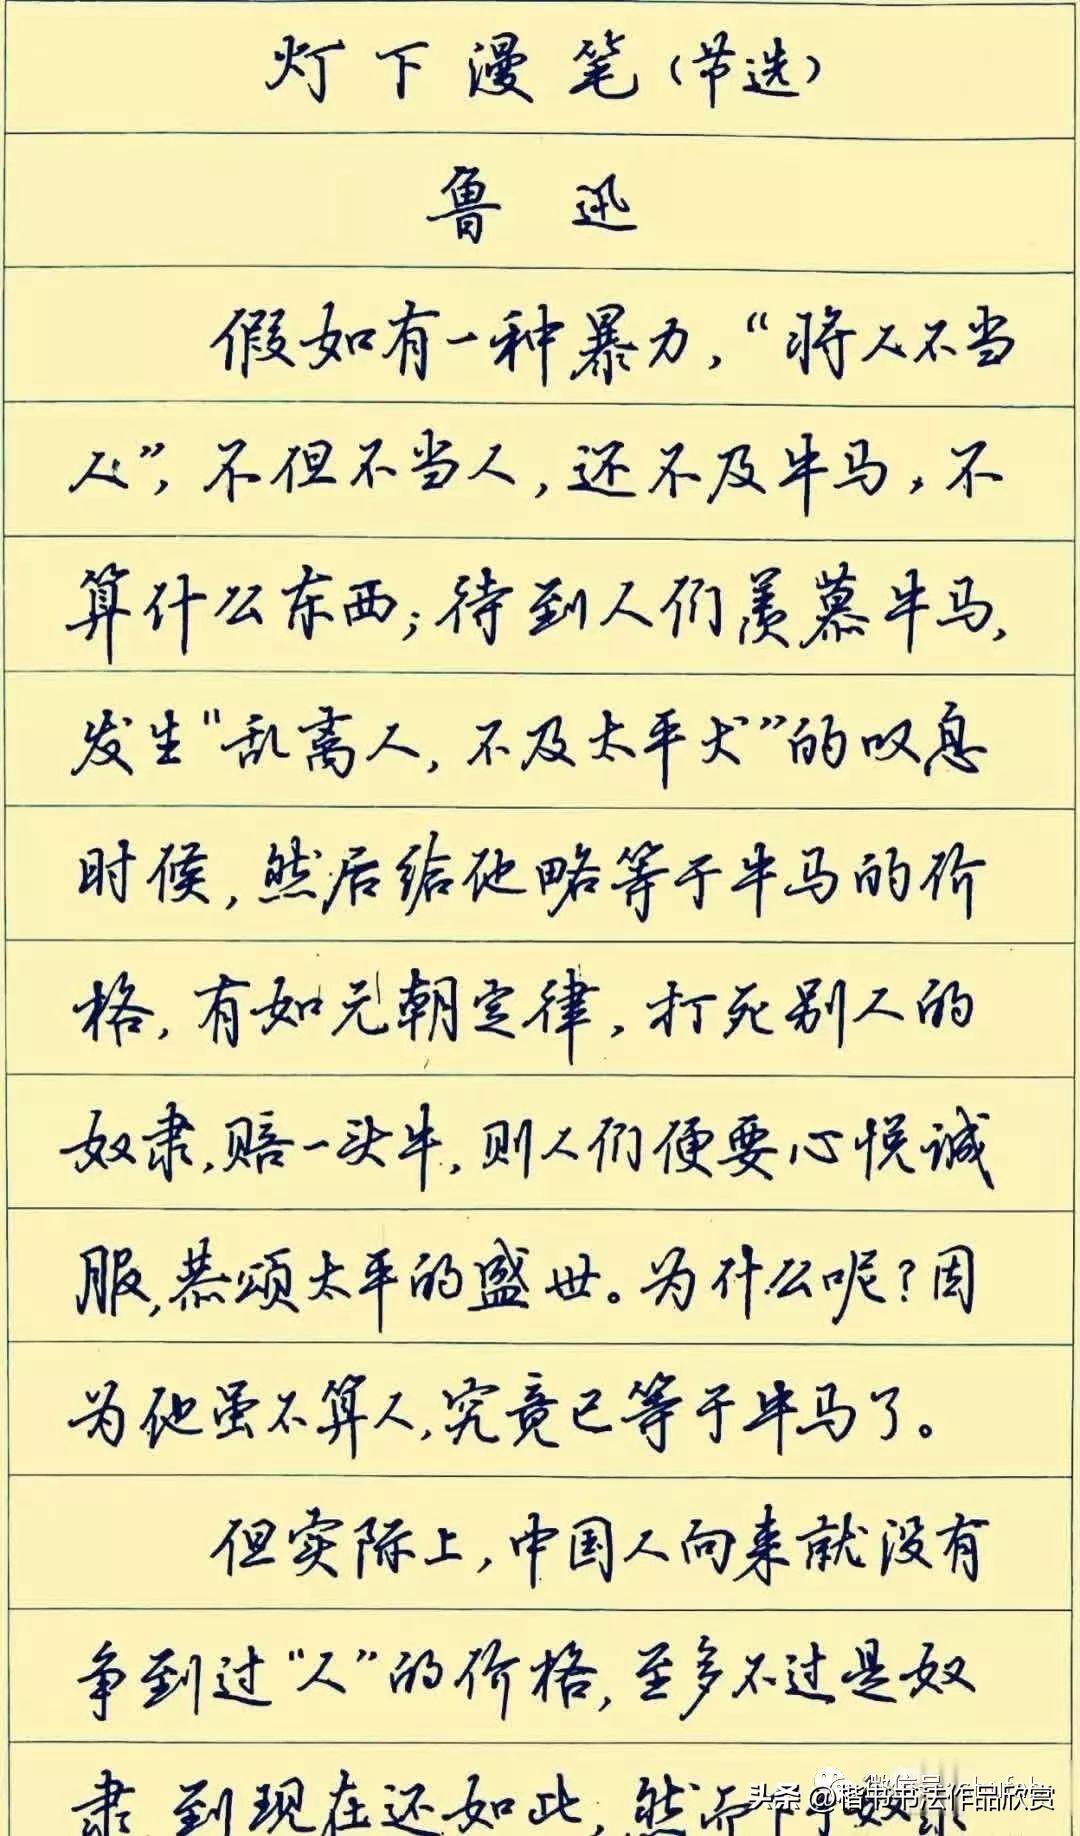 灯下漫笔(节选)
鲁迅
假如有一种暴力，“将人不当
人”，不但不当人，还不及牛马，不
算什么东西；待到人们羡慕牛马，
发生“乱离人，不及太平犬”的叹息
时候，然后给他略等于牛马的价
格，有如元朝定律，打死别人的
奴隶，赔一头牛，则人们便要心悦诚
服，恭颂太平的盛世。为什么呢？因
为他虽不算人，究竟已等于牛马了。
但实际上，中国人向来就没有
争到过“人”的价格，至多不过是奴
隶，到现在还如此，然而
微信号
头条 @楷书书法作品欣赏